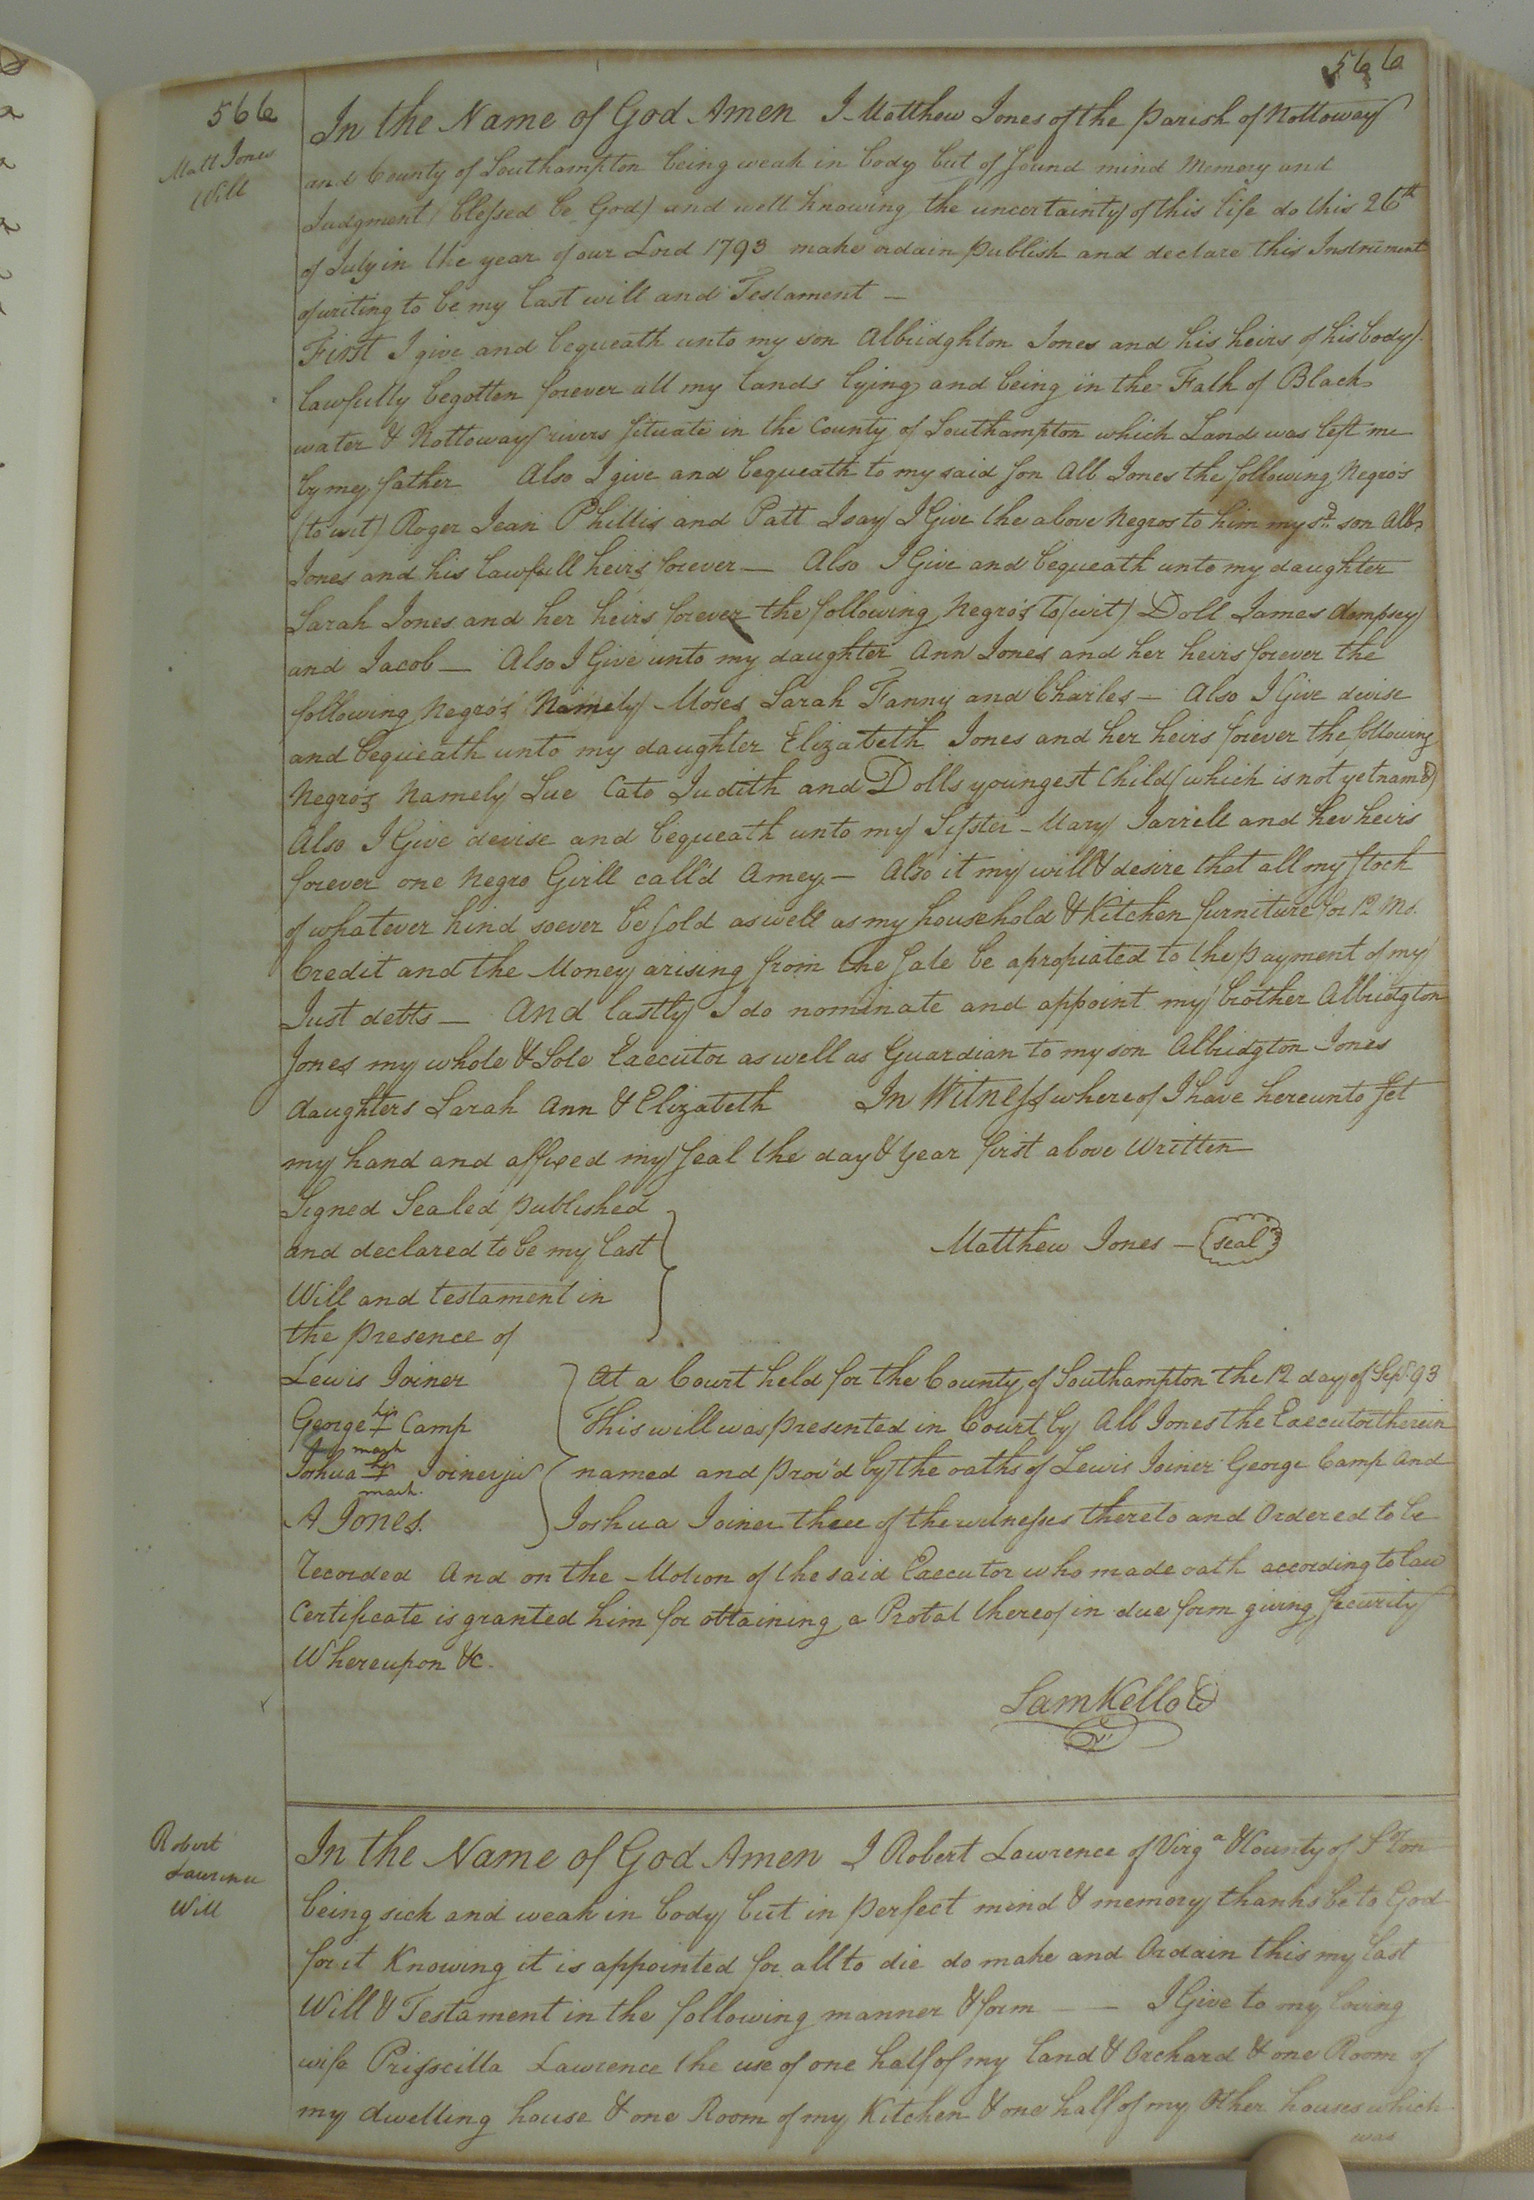 566
566
Matt Jones
Will
In the Name of God Amen I Matthew Jones of the Parish of Nottoway
and County of Southampton being weak in body but of sound mind Memory and
Judgment (blessed be God) and well knowing the uncertainty of this life do this 26th
of July in the year of our Lord 1793 make ordain publish and declare this Instrument
of writing to be my last will and Testament —
First I give and bequeath unto my son Albridghton Jones and his heirs of his body
lawfully begotten forever all my lands lying and being in the Falk of Black
water & Nottoway rivers situate in the County of Southampton which Land was left me
by my father Also I give and bequeath to my said son Alb Jones the following Negro's
(to wit) Roger Jean Phillis and Patt I say I Give the above Negros to him my sd. son Alb.
Jones and his lawfull heirs forever — Also I Give and bequeath unto my daughter
Sarah Jones and her heirs forever the following Negro's to (wit) Doll James dempsey
and Jacob — Also I Give unto my daughter Ann Jones and her heirs forever the
following Negro's Namely Moses Sarah Fanny and Charles — Also I Give devise
and bequeath unto my daughter Elizabeth Jones and her heirs forever the following
Negro's Namely Sue Cato Judith and Dolls youngest Child (which is not yet namd)
Also I Give devise and bequeath unto my Sister Mary Jarrell and her heirs
forever one Negro Girll call'd Amey — Also it my will & desire that all my stock
of whatever kind soever be sold as well as my household & Kitchen furniture for 12 Mo.
Credit and the Money arising from the sale be apropiated to the payment of my
Just debts — And lastly I do nominate and appoint my brother Albridgton
Jones my whole & Sole Executor as well as Guardian to my son Albridgton Jones
daughters Sarah Ann & Elizabeth In Witness whereof I have hereunto set
my hand and affixed my seal the day & year first above Written
Signed Sealed published
and declared to be my last
Will and testament in
the presence of
Matthew Jones — seal
Lewis Joiner
George his + Camp
mark
Joshua his + Joiner jur
mark.
A Jones.
At a Court held for the County of Southampton the 12 day of Sepr. 93
This will was presented in Court by Alb Jones the Executor therein
named and Prov'd by the oaths of Lewis Joiner George Camp And
Joshua Joiner three of the witnesses thereto and Ordered to be
recorded And on the Motion of the said Executor who made oath according to law
Certificate is granted him for obtaining a Probat thereof in due form giving security
Whereupon &c.
Sam Kello
Robert
Lawrence
Will
In the Name of God Amen I Robert Lawrence of Virga & County of S Ton
being sick and weak in body but in perfect mind & memory thanks be to God
for it Knowing it is appointed for all to die do make and Ordain this my last
Will & Testament in the following manner & form — — I Give to my loving
wife Prisscilla Lawrence the use of one half of my land & Orchard & one Room of
my dwelling house & one Room of my Kitchen & one half of my Other houses which
was